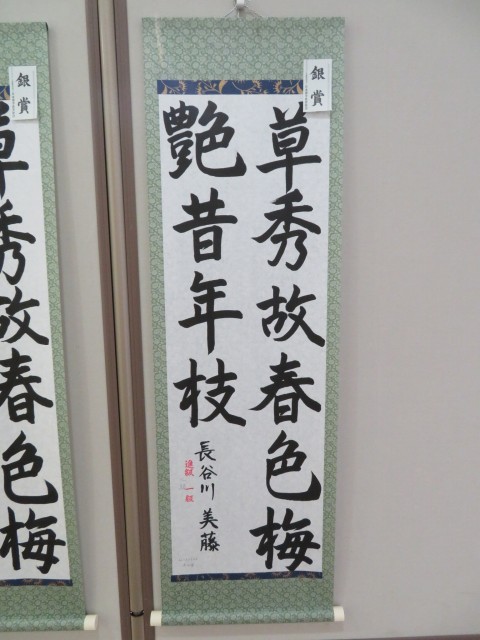 銀賞
草秀故春色梅
艶昔年枝
長谷川美藤
一級
銀賞
草秀故春色梅